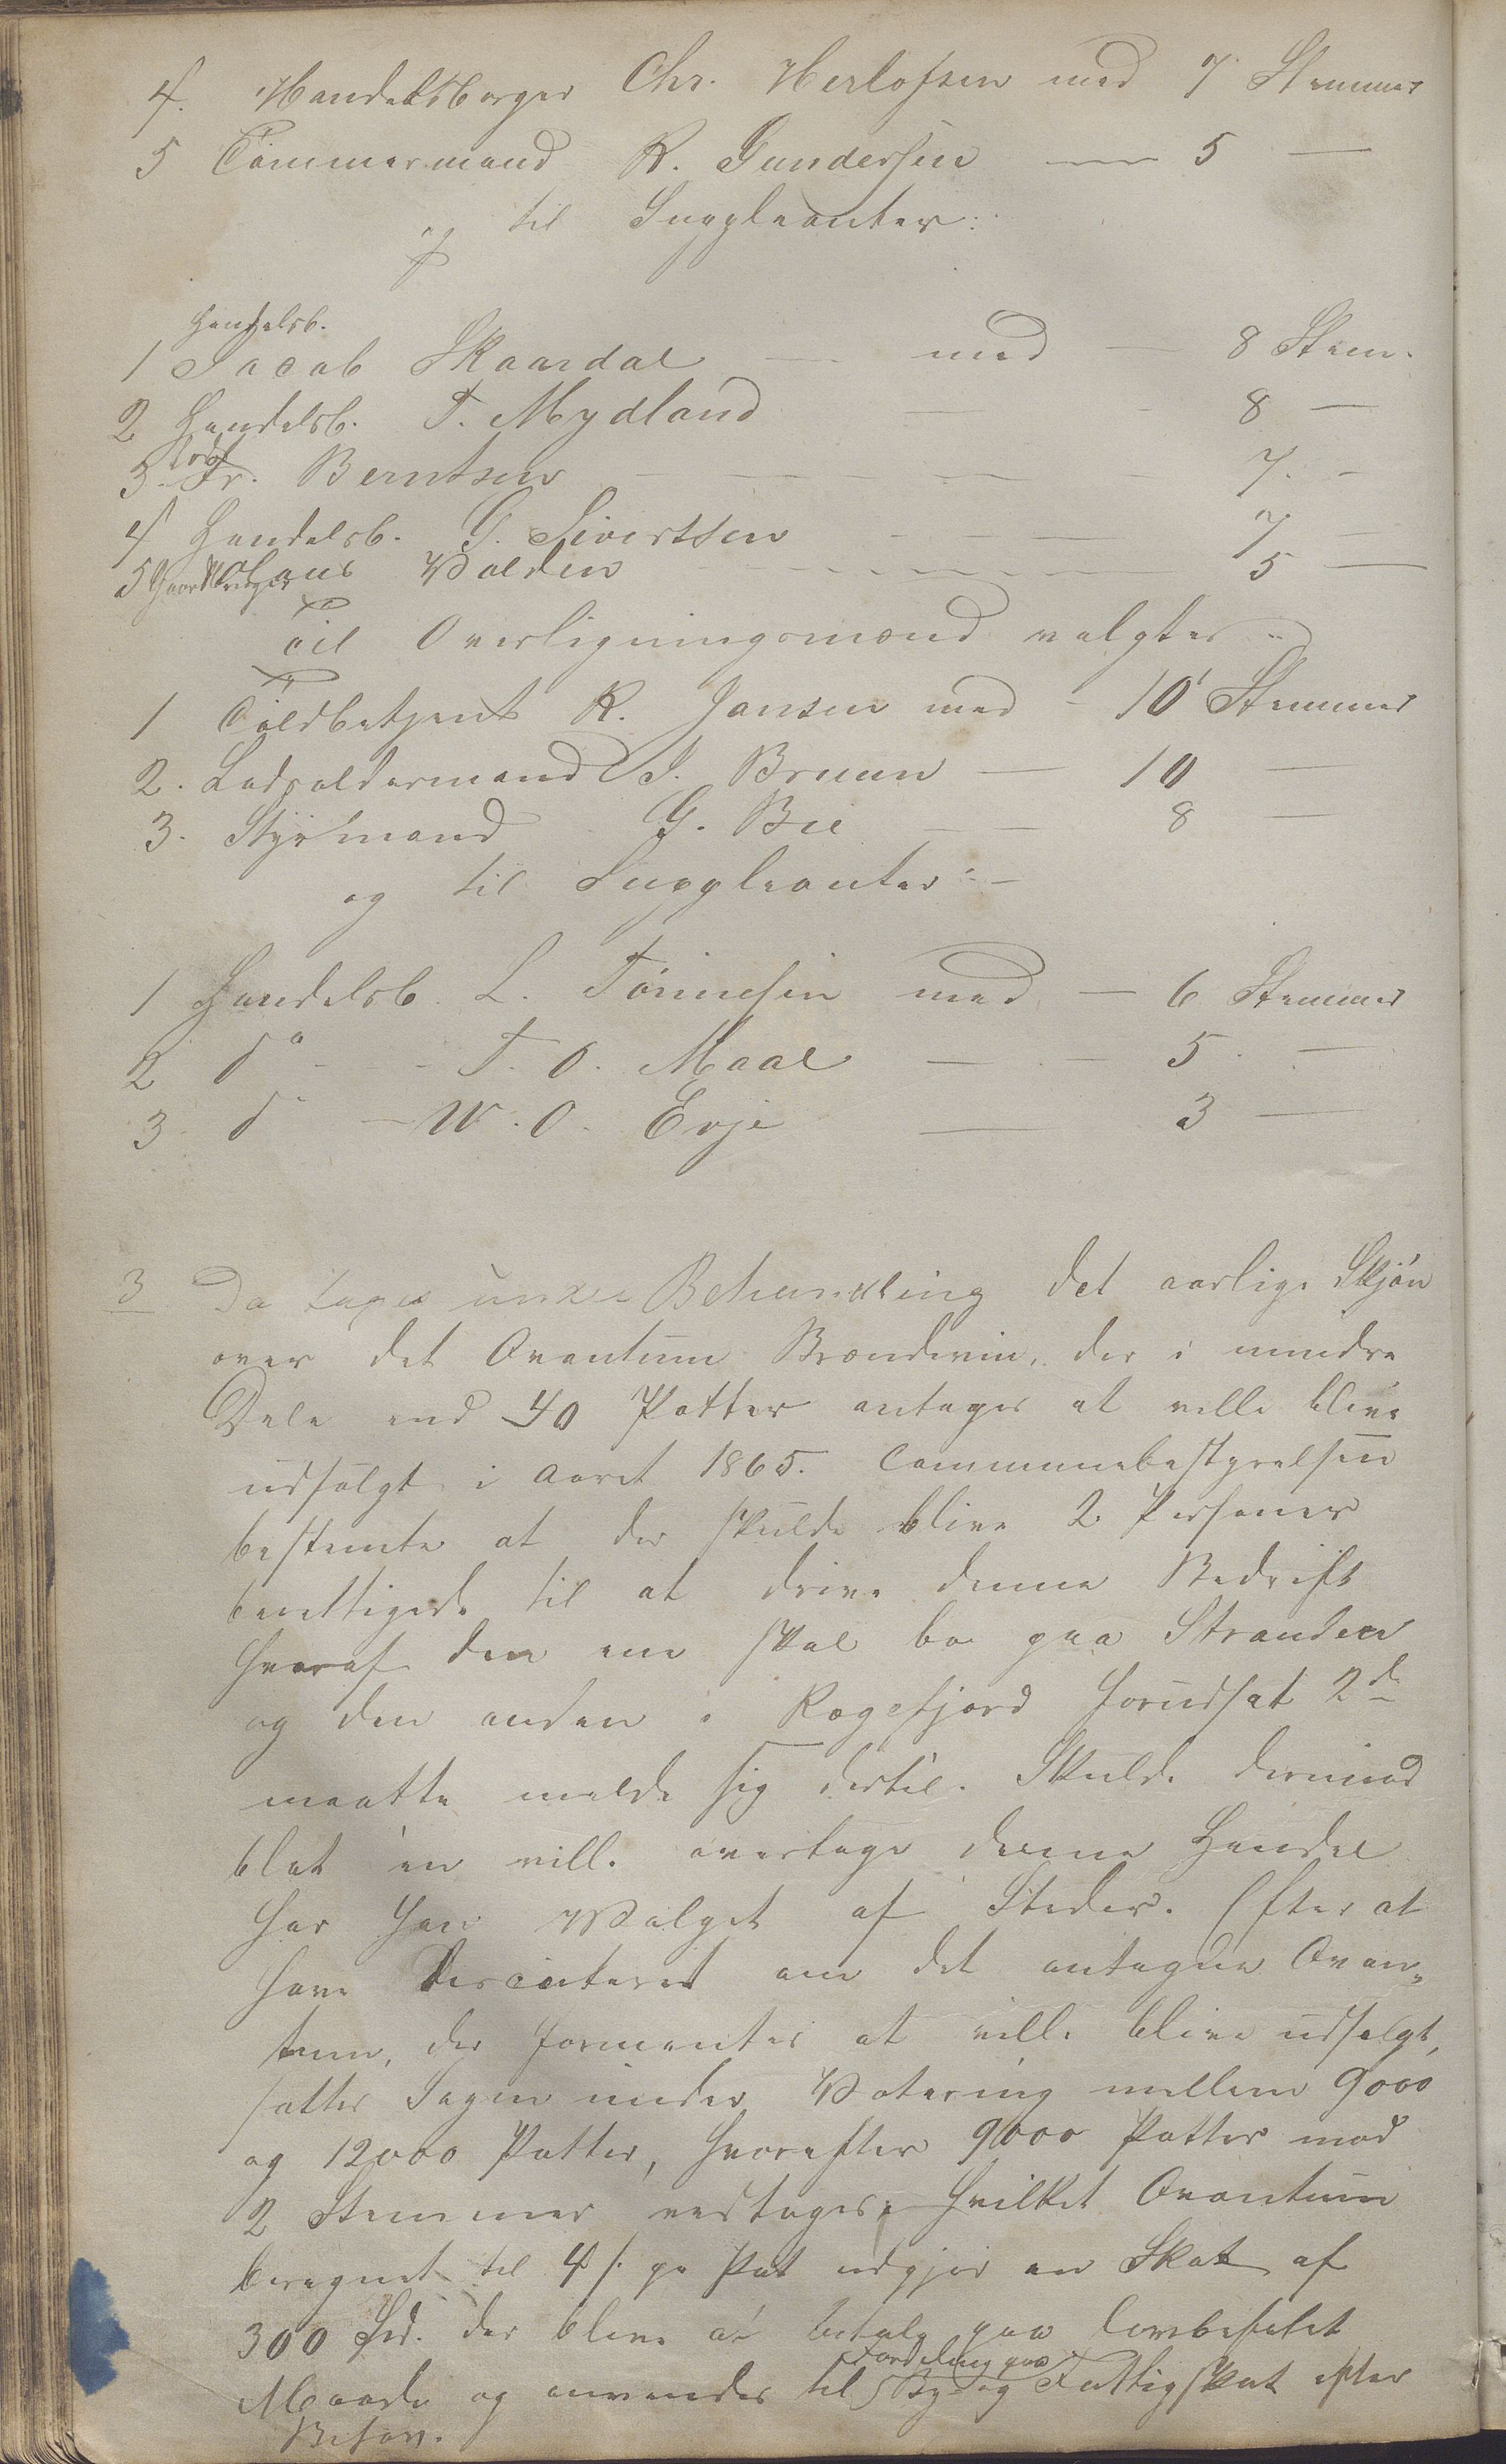 4. Handelsborger Chr. Herlofsen med 7 Stemmer
5 Tømmermand R. Gundersen — 5 —
og til Suppleanter:
Handelsb.
1 Jacob Skaardal — med — 8 Stem.
2 Handelsb. T. Mydland — 8 —
Lods
3. Fr. Berntsen — 7. —
4 Handelsb. G. Sivertsen — 7 —
5 Gaardbruger Claus Valden — 5 —
Til Overligningsmænd valgtes:
1 Toldbetjent R. Jansen med - 10 Stemmer
2. Lodsoldermand J. Bruun — 10 —
3. Styrmand G. Bie — 8 —
og til Suppleanter:-
1 Handelsb. L. Tønnesen med — 6 Stemmer
2 do - - T. O. Maal — 5. —
3 do — W. O. Evje — 3 —
3 Da toges under Behandling det aarlige Skjøn
over det Qvantum Brændeviin, der i mindre
Dele end 40 Potter antages at ville blive
udsolgt i Aaret 1865. Communebestyrelsen
bestemte at der skulde blive 2 Personer
berettigede til at drive denne Bedrift
hvoraf den ene skal bo paa Stranden
og den anden i Rægefjord forudsat 2de
maatte melde sig dertil. Skulde derimod
blot en ville overtage denne Handel
har han Valget af Steder. Efter at
have discuteret om det antagne Qvan-
tum, der formentes at ville blive udsolgt,
sattes Sagen under Votering mellem 9000
og 12000 Potter, hvorefter 9000 Potter mod
2 Stemmer vedtoges, hvilket Qvantum
beregnet til 4 s. pr Pot udgjør en Skat af
300 Spd. der blive at betale paa lovbefalet
Fordeling paa
Maade og anvendes til By- og Fattigskat efter
Behov.